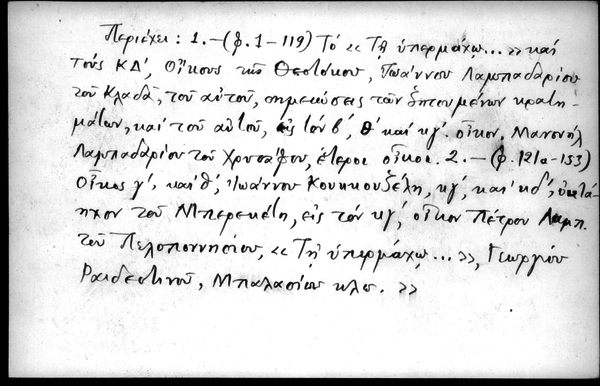 Περιέχει : 1. – (φ. 1 – 119) Τό « Τῇ ὑπερμάχῳ... » καί
τούς ΚΔ', Οἴκους τῆς Θεοτόκου, Ἰωάννου Λαμπαδαρίου
τοῦ Κλαδᾶ, τοῦ αὐτοῦ, σημειώσεις τῶν ζητουμένων κρατη-
μάτων, καί τοῦ αὐτοῦ, εἰς τόν β', θ' καί κγ'. οἶκον, Μανουήλ
Λαμπαδαρίου τοῦ Χρυσάφου, ἕτεροι οἶκοι. 2. – (φ. 121α - 153)
Οἶκος γ', καί θ', Ἰωάννου Κουκουζέλη, κγ', καί κδ',
τοῦ Μπερεκέτη, εἰς τόν κγ', οἶκον Πέτρου Λαμπ.
τοῦ Πελοποννησίου, « Τῇ ὑπερμάχῳ ... », Γεωργίου
Ραιδεστινοῦ, Μπαλασίου κλπ. »